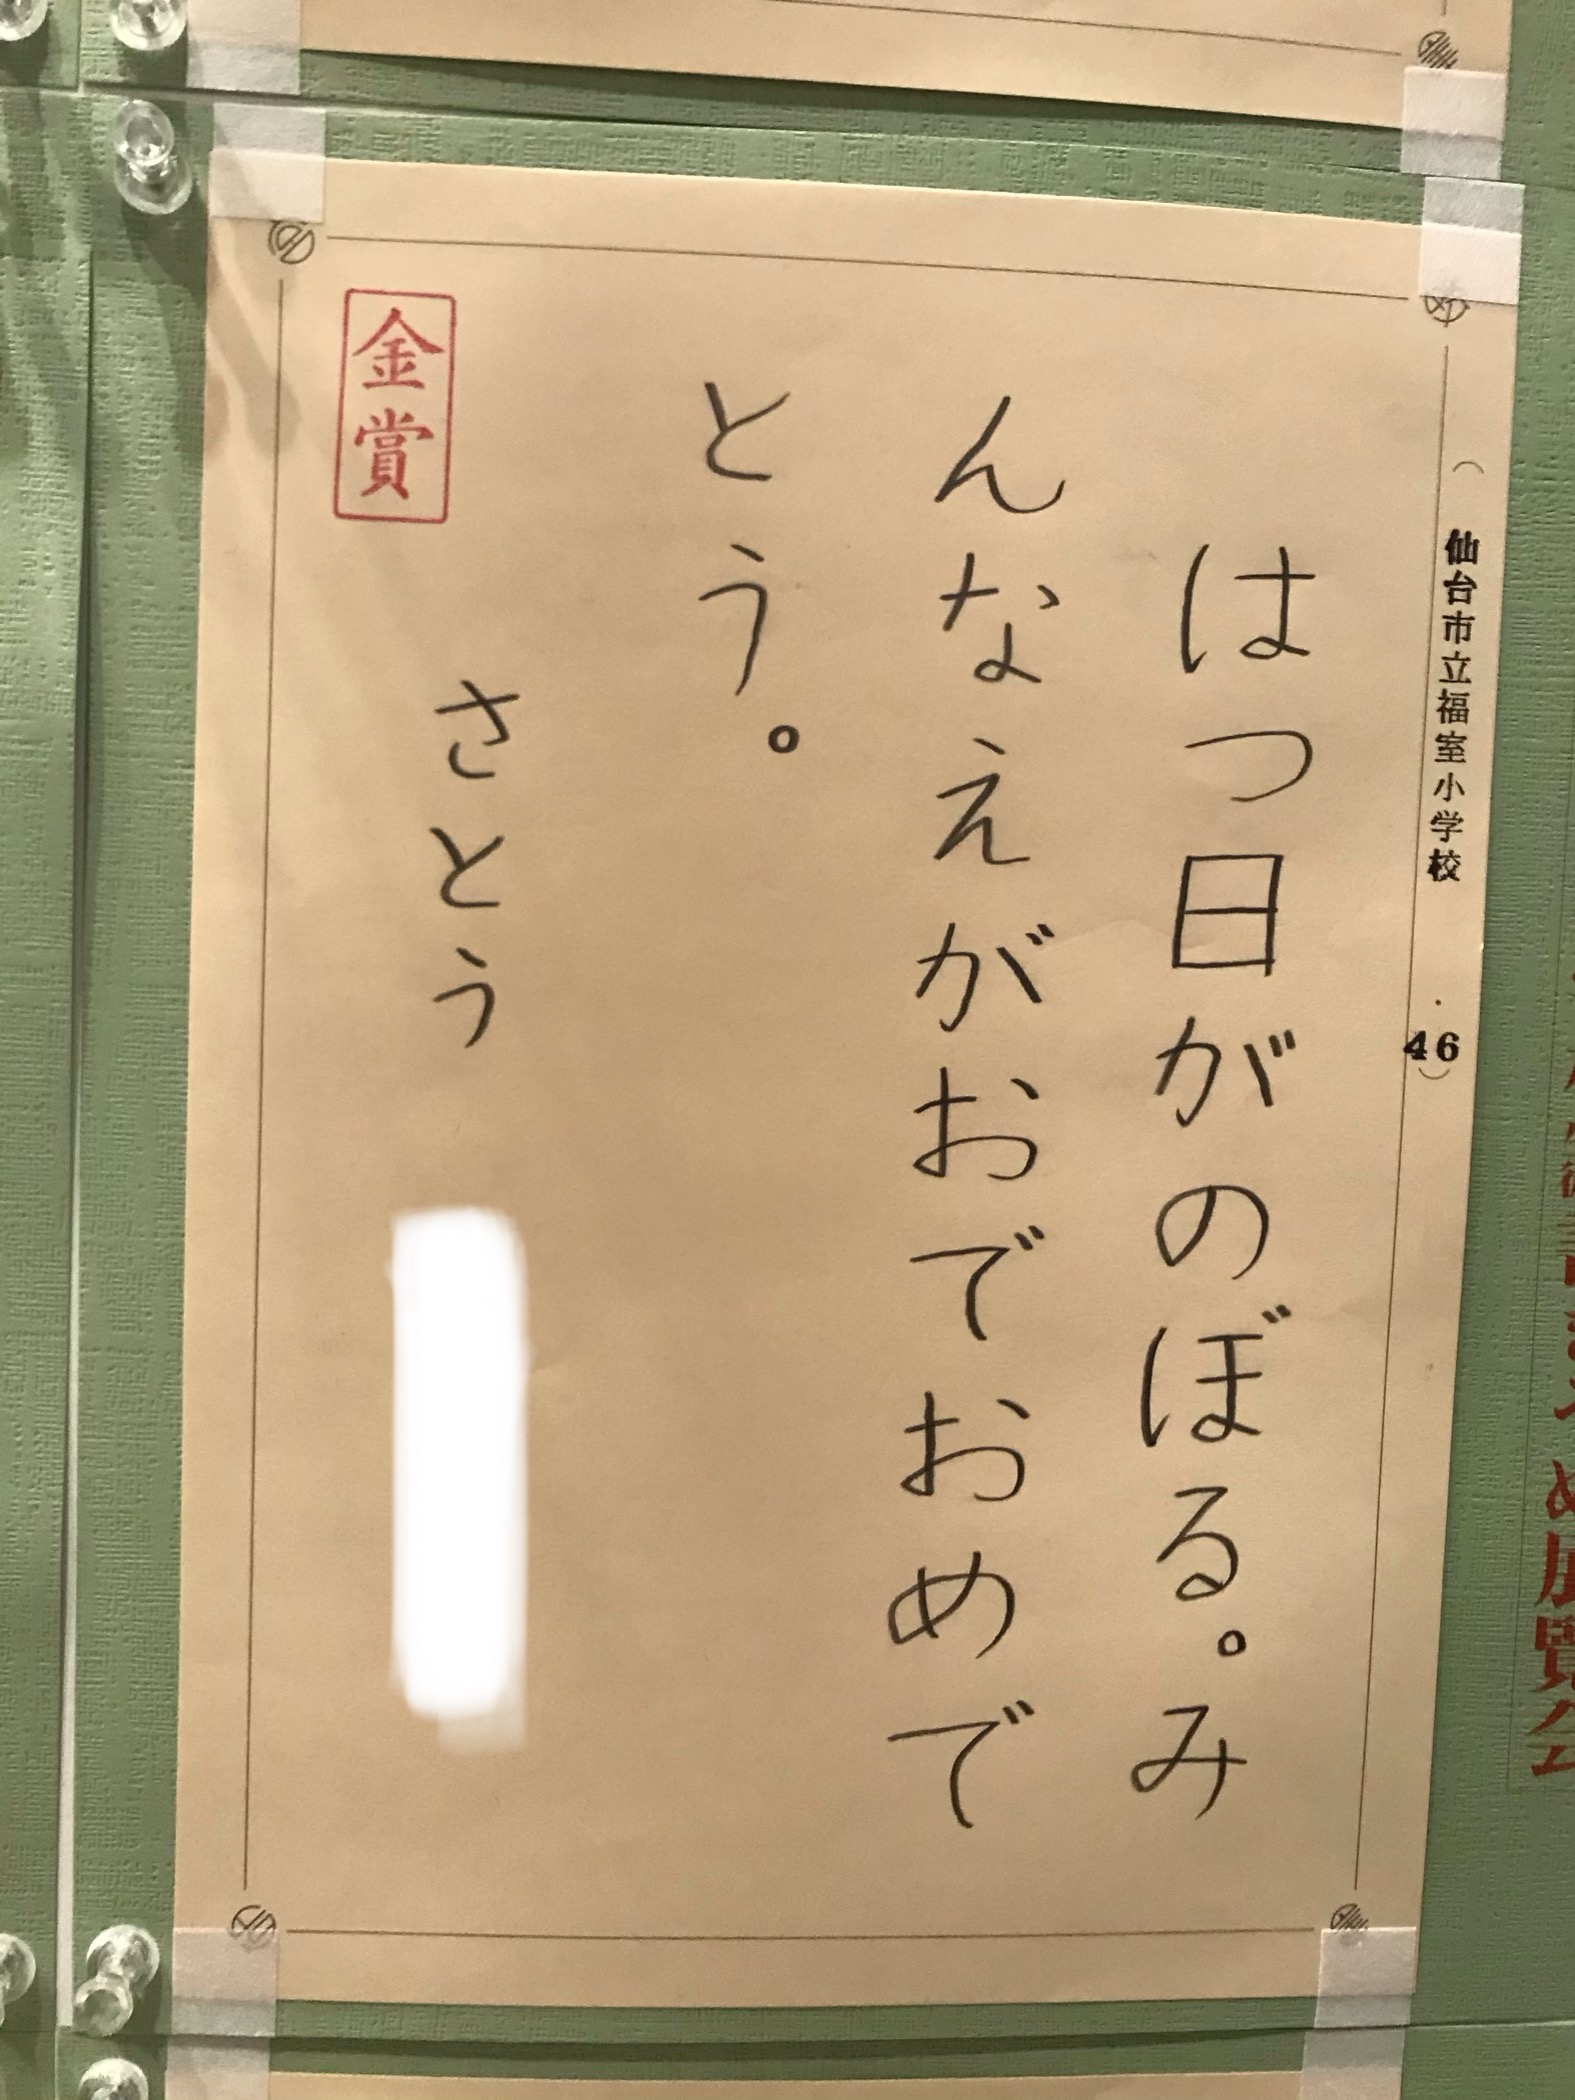 （仙台市立福室小学校　・46）
はつ日がのぼる。み
んなえがおでおめで
とう。
さとう
金賞